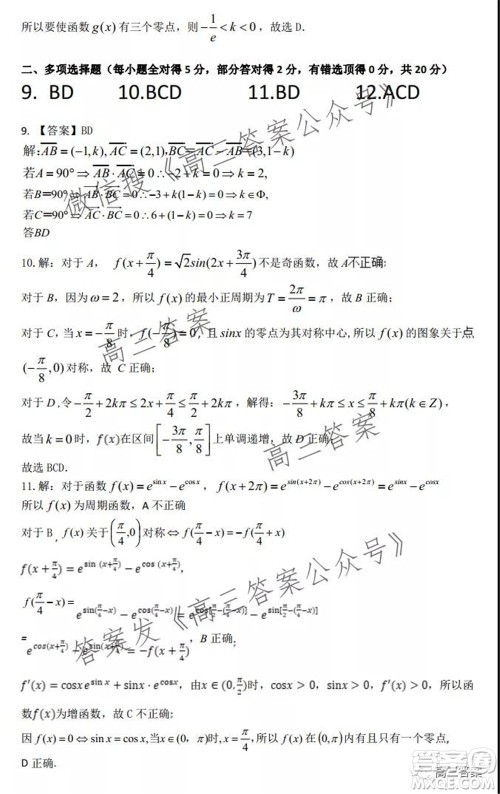 所以要使函数 g(x) 有三个零点，则 -1/e < k < 0，故选 D.
二、多项选择题（每小题全对得 5 分，部分答对得 2 分，有错选顶得 0 分，共 20 分）
9. BD 10.BCD 11.BD 12.ACD
9. 【答案】BD
解: AB = (-1, k), AC = (2,1), BC = AC - AB = (3,1-k)
若A = 90° ⇔ AB · AC = 0 ⇔ -2 + k = 0 ⇔ k = 2,
若B = 90° ⇔ AB · BC = 0 ⇔ -3 + k(1-k) = 0 ⇔ k ∈ Φ,
若C = 90° ⇔ AC · BC = 0 ⇔ 6 + (1-k) = 0 ⇔ k = 7
答BD
10.解：对于 A， f(x + π/4) = √2 sin(2x + 3π/4) 不是奇函数，故 A不正确:
对于 B，因为 ω = 2，所以 f(x) 的最小正周期为 T = 2π/ω = π，故 B 正确:
对于 C，当 x = -π/8 时，f(-π/8) = 0，且 sinx 的零点为其对称中心，所以 f(x) 的图象关于点
(-π/8, 0) 对称，故 C 正确:
对于 D，令 -π/2 + 2kπ ≤ 2x + π/4 ≤ π/2 + 2kπ，解得: -3π/8 + kπ ≤ x ≤ π/8 + kπ (k ∈ Z)，
故当 k = 0 时，f(x) 在区间 [-3π/8, π/8] 上单调递增，故 D 正确.
故选 BCD.
11.解：对于函数 f(x) = e^{sin x} - e^{cos x}，f(x + 2π) = e^{sin(x+2π)} - e^{cos(x+2π)} = e^{sin x} - e^{cos x}
所以 f(x) 为周期函数，A 不正确
对于 B，f(x) 关于 (π/4, 0) 对称 ⇔ f(π/4 - x) = -f(π/4 + x)
f(x + π/4) = e^{sin (x+π/4)} - e^{cos (x+π/4)},
f(π/4 - x) = e^{sin(π/4 - x)} - e^{cos(π/4 - x)} = e^{sin[π/2-(π/4+x)]} - e^{cos[π/2-(π/4+x)]}
= e^{cos(x+π/4)} - e^{sin(x+π/4)} = -f(x + π/4)，B 正确.
f'(x) = cosx e^{sin x} + sinx · e^{cos x}，由x ∈ (0, π/2)时，cosx > 0，sinx > 0，所以函
数f(x)为增函数，故 C不正确:
因 f(x) = 0 ⇔ sin x = cos x, 当x ∈ (0，π)时, x = π/4，所以 f(x) 在 (0, π) 内有且只有一个零点,
D 正确.
微信搜《高三答案公众号》
高三答案
高三答案
答案发《高三答案公众号》
高三答案